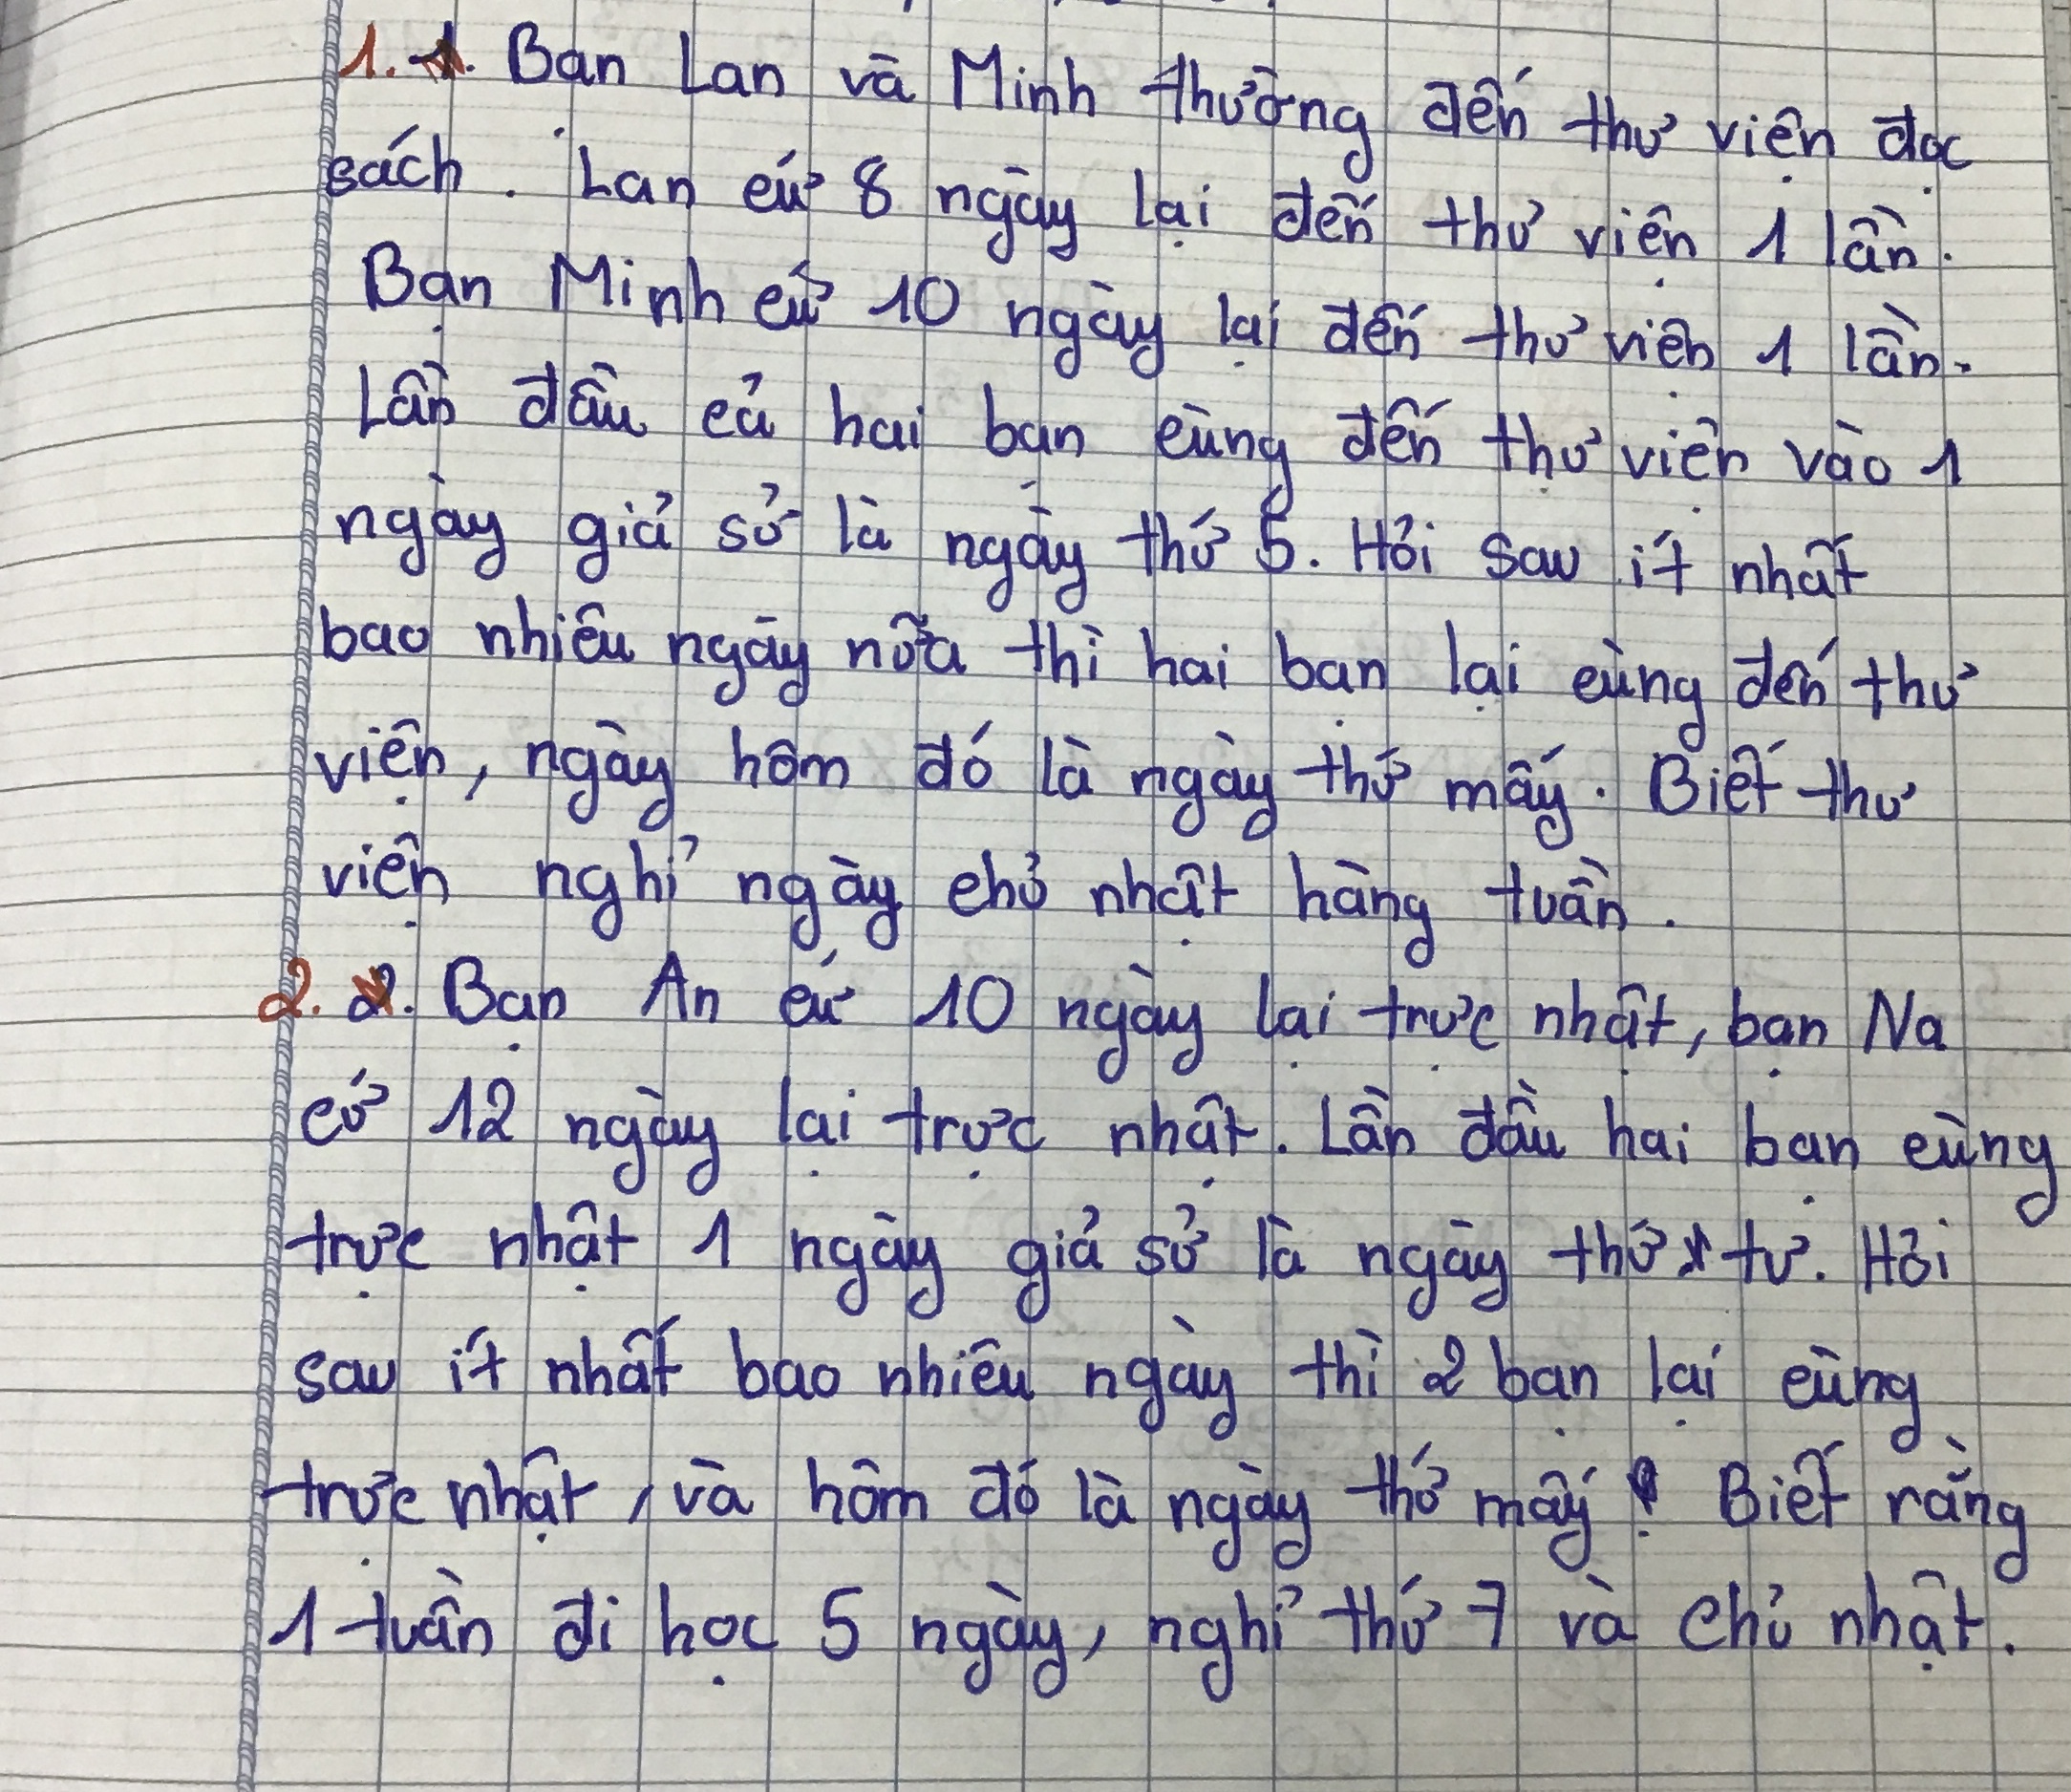 1. 1. Bạn Lan và Minh thường đến thư viện đọc
sách. Lan cứ 8 ngày lại đến thư viện 1 lần.
Bạn Minh cứ 10 ngày lại đến thư viện 1 lần.
Lần đầu cả hai bạn cùng đến thư viện vào 1
ngày giả sử là ngày thứ 5. Hỏi sau ít nhất
bao nhiêu ngày nữa thì hai bạn lại cùng đến thư
viện, ngày hôm đó là ngày thứ mấy. Biết thư
viện nghỉ ngày chủ nhật hàng tuần.
2. 2. Bạn An cứ 10 ngày lại trực nhật, bạn Na
cứ 12 ngày lại trực nhật. Lần đầu hai bạn cùng
trực nhật 1 ngày giả sử là ngày thứ tư. Hỏi
sau ít nhất bao nhiêu ngày thì 2 bạn lại cùng
trực nhật, và hôm đó là ngày thứ mấy? Biết rằng
1 tuần đi học 5 ngày, nghỉ thứ 7 và chủ nhật.